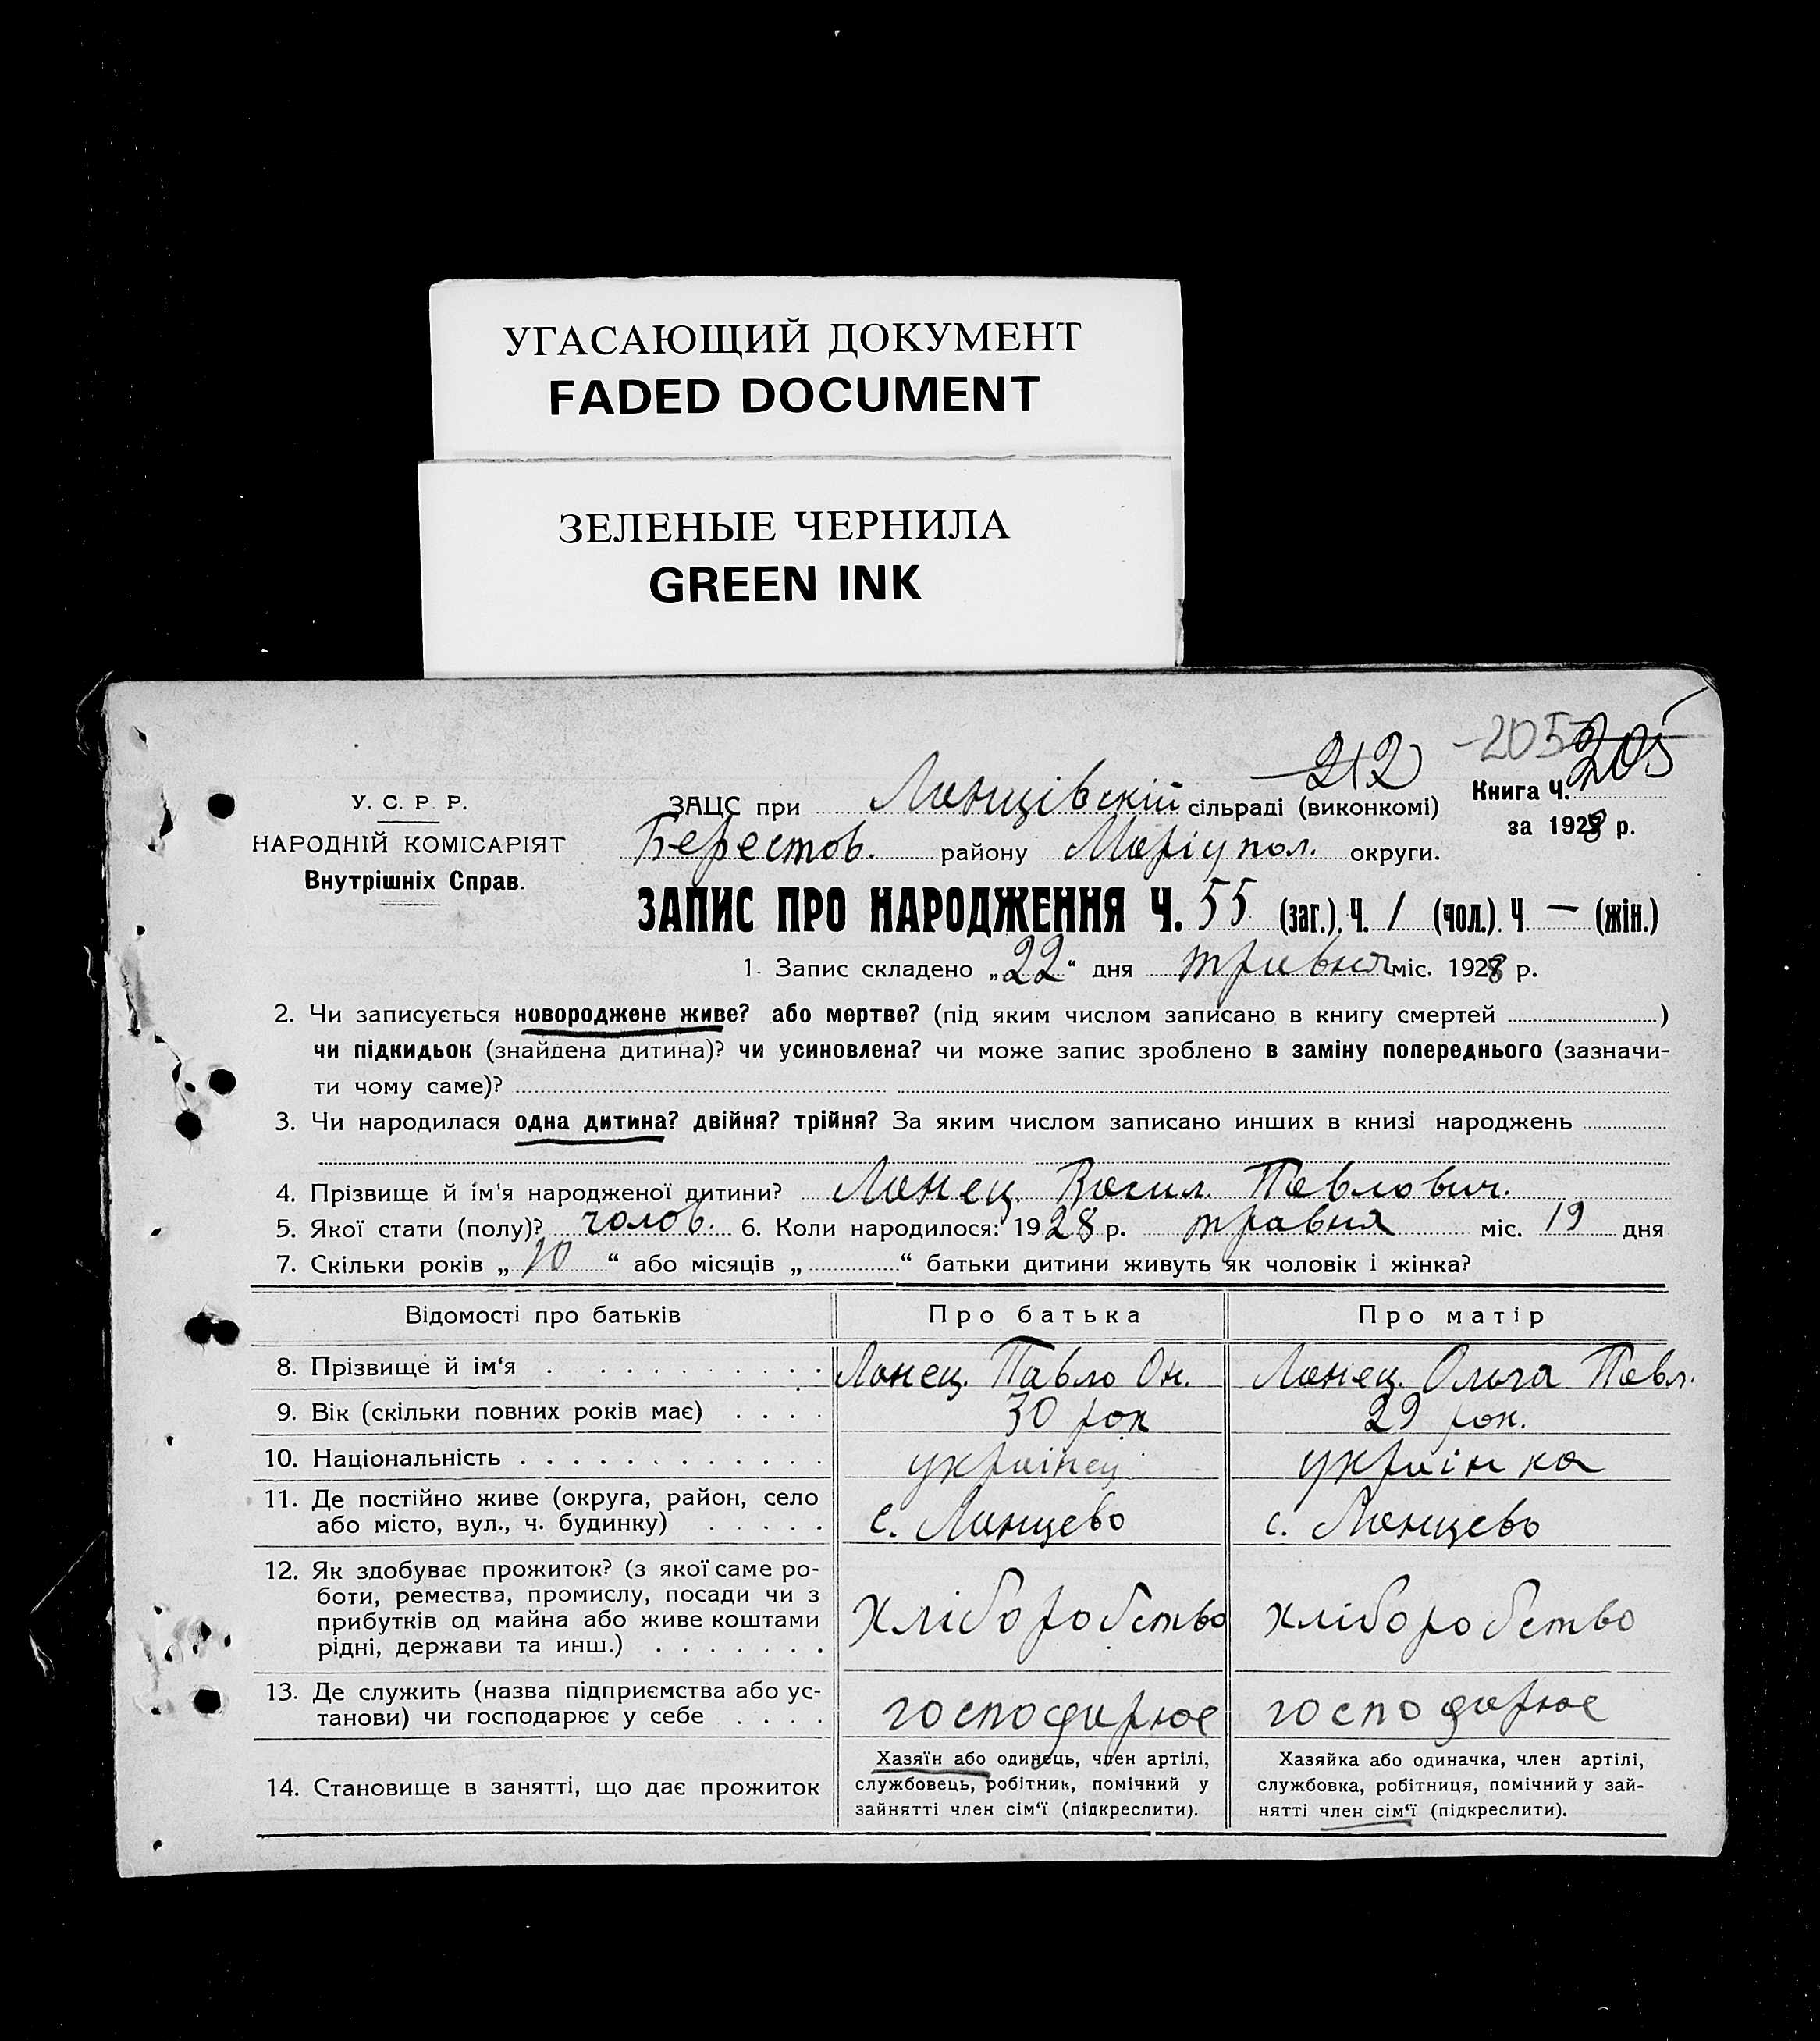 УГАСАЮЩИЙ ДОКУМЕНТ
FADED DOCUMENT
ЗЕЛЕНЫЕ ЧЕРНИЛА
GREEN INK
-205
212
205
Книга Ч.
за 1928 р.
У. С. Р. Р.
НАРОДНІЙ КОМІСАРІЯТ
Внутрішніх Справ.
ЗАЦС при Ланцівскій сільраді (виконкомі)
Берестов. району Маріупол. округи.
ЗАПИС ПРО НАРОДЖЕННЯ Ч. 55 (заг.). Ч. 1 (чол.). Ч — (жін.)
1. Запис складено „22“ дня травня міс. 1928 р.
2. Чи записується новороджене живе? або мертве? (під яким числом записано в книгу смертей )
чи підкидьок (знайдена дитина)? чи усиновлена? чи може запис зроблено в заміну попереднього (зазначи-
ти чому саме)?
3. Чи народилася одна дитина? двійня? трійня? За яким числом записано инших в книзі народжень
4. Прізвище й ім'я народженої дитини? Ланец. Васил. Павлович.
5. Якої стати (полу)? чолов. 6. Коли народилося: 1928 р. травня міс. 19 дня
7. Скільки років „10“ або місяців „ “ батьки дитини живуть як чоловік і жінка?
Відомості про батьків Про батька Про матір
8. Прізвище й ім‘я Ланец. Павло Он. Ланец. Ольга Павл.
9. Вік (скільки повних років має) 30 рок 29 рок.
10. Національність українец українка
11. Де постійно живе (округа, район, село
або місто, вул., ч. будинку) с. Ланцево с. Ланцево
12. Як здобуває прожиток? (з якої саме ро-
боти, ремества, промислу, посади чи з
прибутків од майна або живе коштами
рідні, держави та инш.) хліборобство хліборобство
13. Де служить (назва підприємства або ус-
танови) чи господарює у себе господарює господарює
14. Становище в занятті, що дає прожиток
Хазяїн або одинець, член артілі,
службовець, робітник, помічний у
зайнятті член сім‘ї (підкреслити).
Хазяйка або одиначка, член артілі,
службовка, робітниця, помічний у зай-
нятті член сім‘ї (підкреслити).